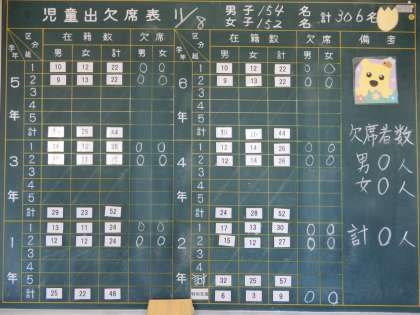 児童出欠席表 11/8 男子154名 計306名
女子152名
学年 区分 組 在籍数 欠席 学年 区分 組 在籍数 欠席 備考
男 女 計 男 女 男 女 計 男 女
5年 1 10 12 22 0 0 6年 1 10 12 22 0 0
2 9 13 22 0 0 2 22 0 0
3 3
4 4
5 5
計 25 44 計 44
欠席者数
3年 1 12 26 0 0 4年 1 12 14 26 0 0
2 11 26 0 0 2 12 14 26 0 0
男0人
3 3
女0人
4 4
5 5
計 29 23 52 計 24 28 52
1年 1 13 11 24 0 0 2年 1 17 13 30 0 0
2 12 12 24 0 0 2 15 12 27 0 0
計0人
3 3
4 4
5 5
計 32 25 57
計 25 48 6 3 9 0 0